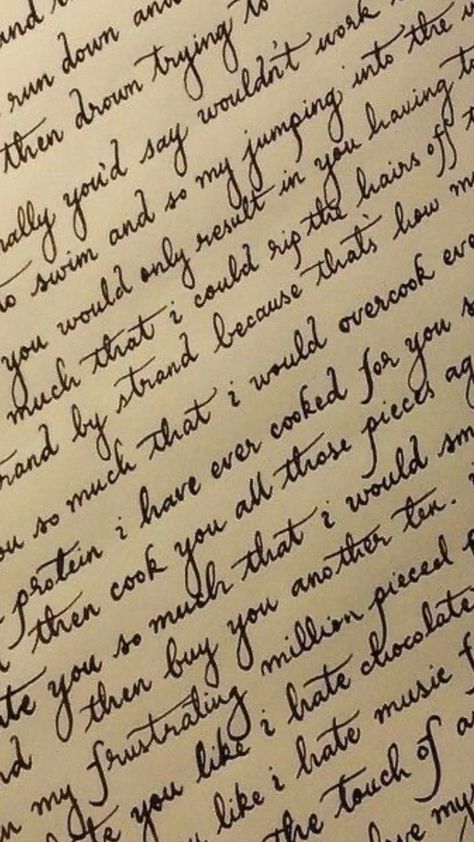 and
run down and
then drown trying to
you'd say wouldn't work
to swim and so my jumping into the
you would only result in you having to
much that i could rip the hairs off
strand by strand because that's how
you so much that i would overcook
protein i have ever cooked for you
then cook you all those pieces
you so much that i would
then buy you another ten.
my frustrating million pieced
you like i hate chocolate
like i hate music
the touch of